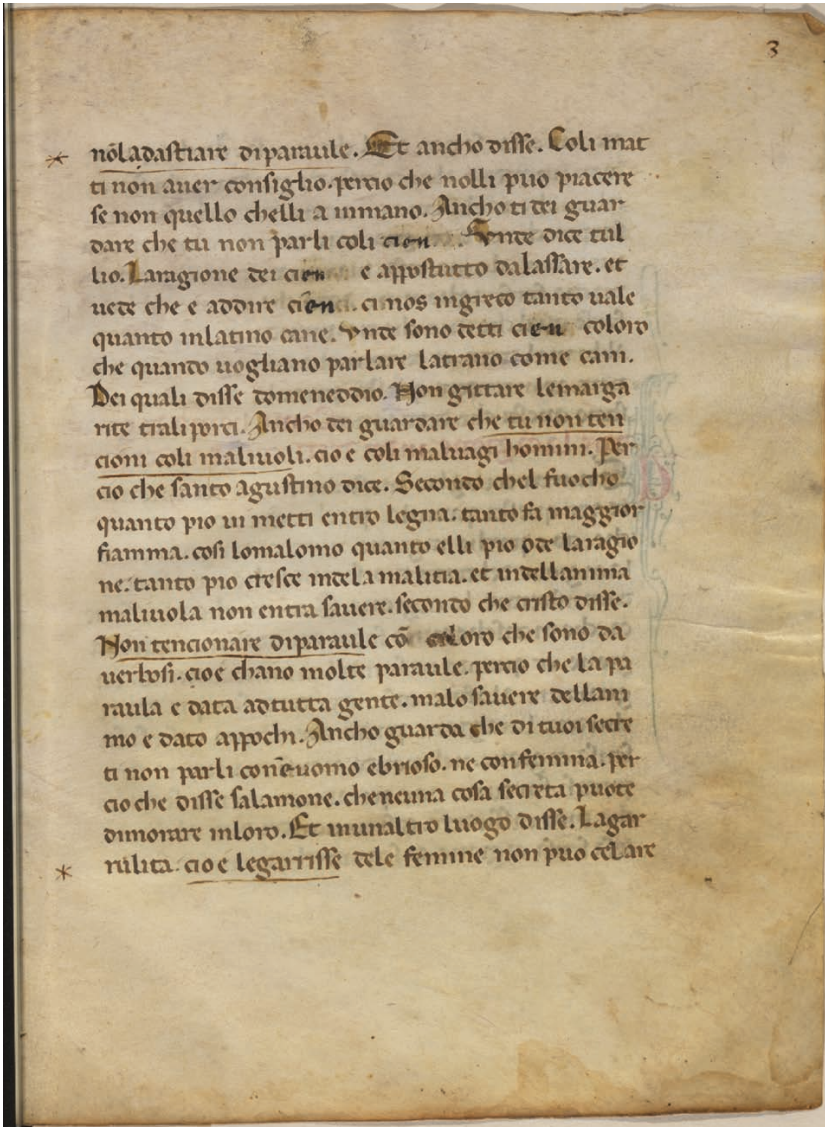 3
nōladastiare diparaule. Et ancho disse. Coli mat
ti non auer consiglio. percio che nolli puo piacere
se non quello chelli a inmano. Ancho ti dei guar
dare che tu non parli coli cien Vnde dice tul
lio. Laragione dei cien e appostutto dalassare. et
uede che e addire cien . ci nos ingreco tanto uale
quanto inlatino cane. vnde sono detti cien coloro
che quando uogliano parlare latrano come cani.
Dei quali disse domeneddio. Non gittare lemarga
rite trali porci. Ancho dei guardare che tu non ten
cioni coli maliuoli. cio e coli maluagi homini. Per
cio che santo agustino dice. Secondo chel fuocho
quanto pio ui metti entro legna. tanto fa maggior
fiamma. cosi lomalomo quanto elli pio ode laragio
ne. tanto pio cresce indela malitia. et indellanima
maliuola non entra sauere. secondo che cristo disse.
Non tencionare diparaule cō coloro che sono da
uerbosi. cio e chano molte paraule. percio che la pa
raula e data adtutta gente. malo sauere dellani
mo e dato appochi. Ancho guarda che di tuoi secre
ti non parli con uomo ebrioso. ne confemina. per
cio che disse salamone. che neuna cosa secreta puote
dimorare inloro. Et inunaltro luogo disse. Lagar
rulita. cio e legarrisse dele femine non puo celare